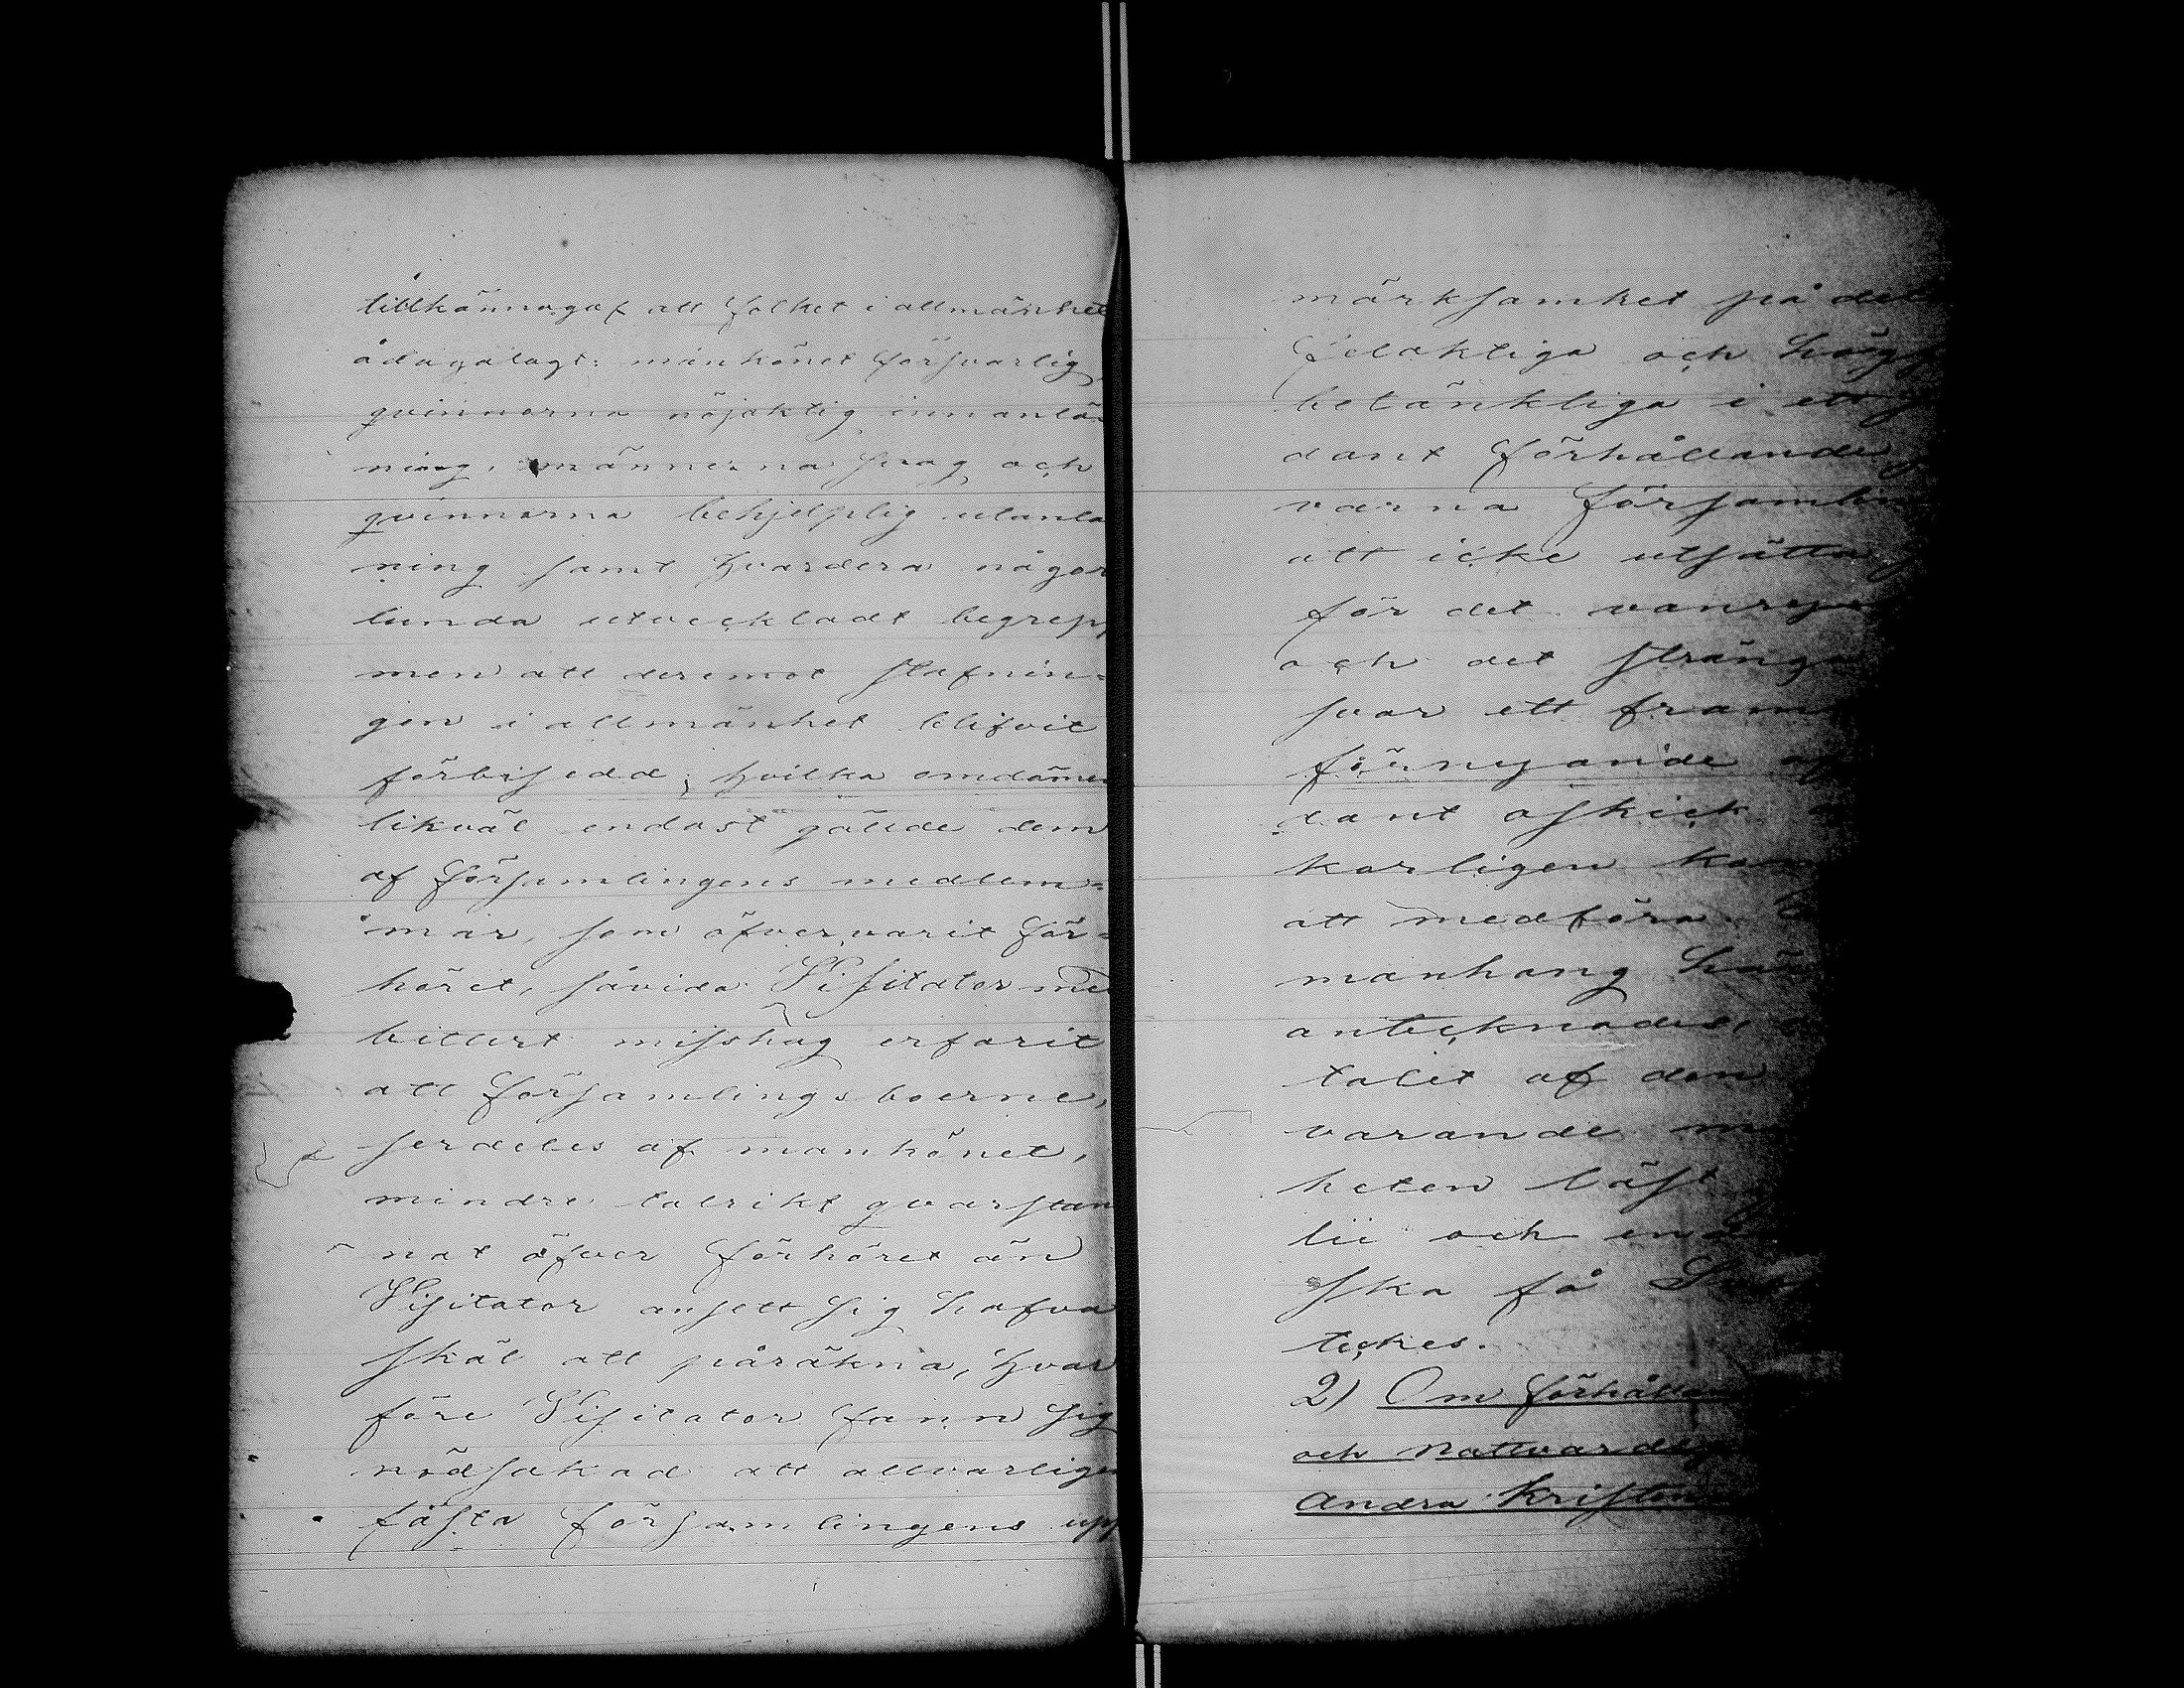 tillkännagaf att folket i allmänhet
ådagalagt: mankönet försvarlig,
qvinnorna nöjaktig innanläs-
ning, männerna svag och
qvinnorna behjelplig utanlä
ning samt hvardera någor
lunda utveckladt begrepp
men att deremot stafnin-
gen i allmänhet blifvit
förbisedd; hvilka omdömen
likväl endast gällde dem
af församlingens medlem-
mar, som öfvervarit för-
höret, såvida Visitator med
bittert misshag erfarit
att församlingsboerne,
serdeles af mankönet,
mindre talrikt qvarstan
nat öfver förhöret än
Visitator ansett sig hafva
skäl att påräkna, hvar
före Visitator fann sig
nödsakad att allvarligen
fästa församlingens upp
märksamhet på det
felaktiga och högst
betänkliga i ett
dant förhållande
varna församlin
att icke utsätta
för det vanry
och det stränga
svar ett fram
förnyande af
dant oskick
karligen kom
att medföra.
manhang
antecknades,
talet af den
varande
heten läst
lii och
ska få
teckes.
2) Om förhållan
och nattvards
andra kristen